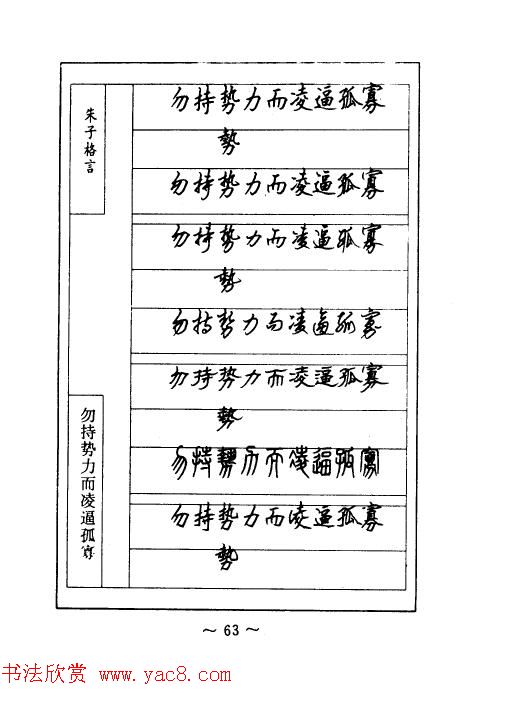 朱子格言
勿持势力而凌逼孤寡
勿持势力而凌逼孤寡
勢
勿持势力而凌逼孤寡
勿持势力而凌逼孤寡
勢
勿持势力而凌逼孤寡
勿持势力而凌逼孤寡
勢
勿持势力而凌逼孤寡
勿持势力而凌逼孤寡
勢
~ 63 ~
书法欣赏 www.yac8.com